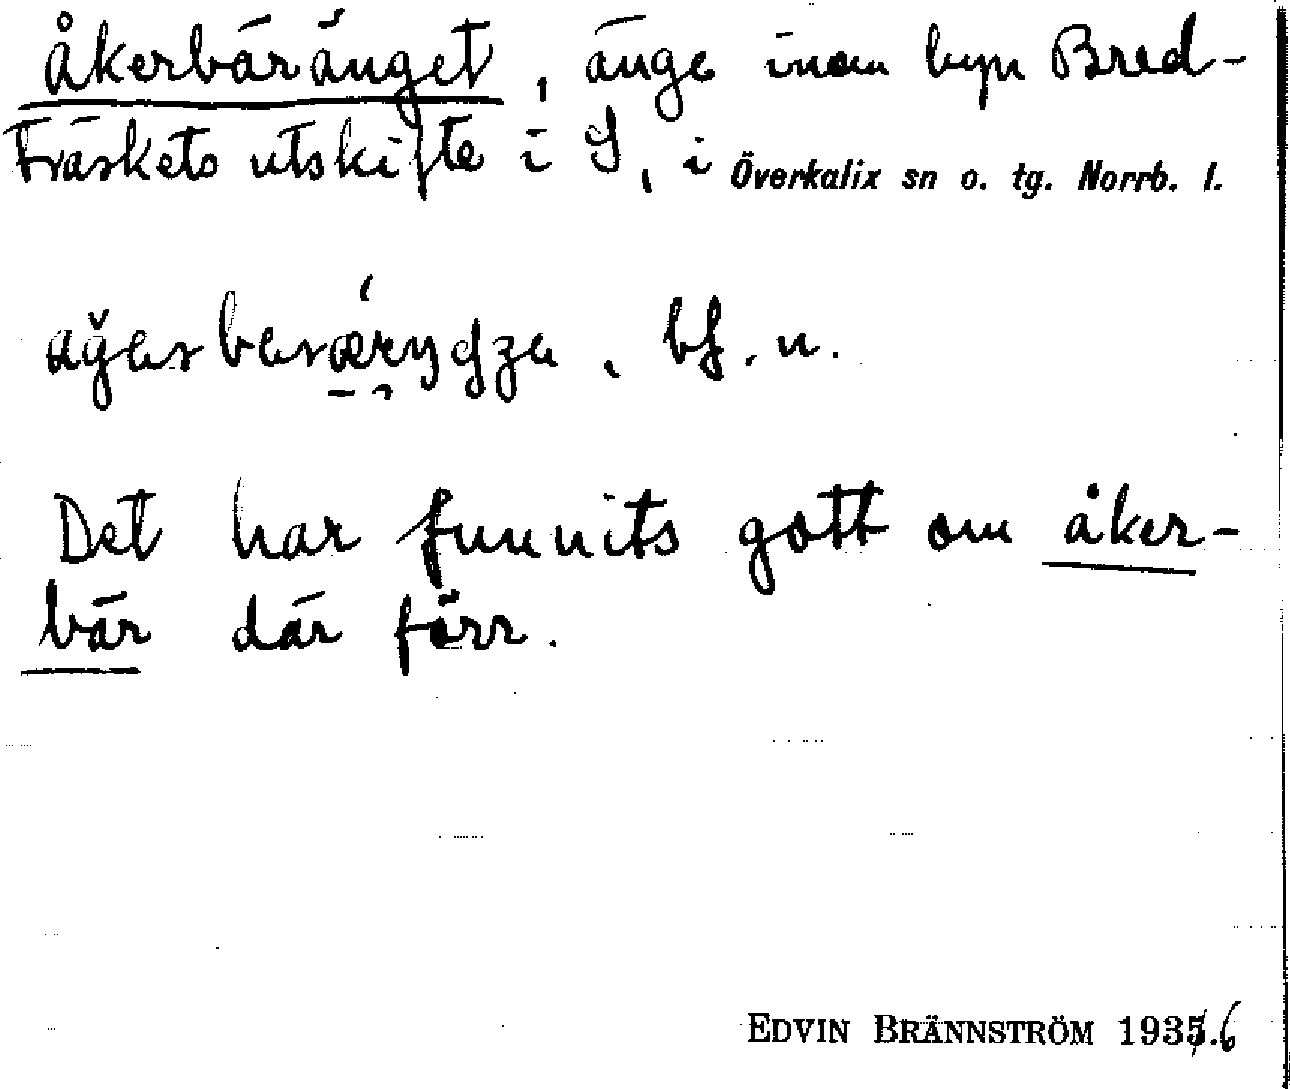 åkerbäränget, änge inom byn Bred-
träskets utskifte i S, i Överkalix sn o. tg. Norrb. l.
bf. n.
Det har funnits gott om åker-
bär där förr.
EDVIN BRÄNNSTRÖM 1935.6